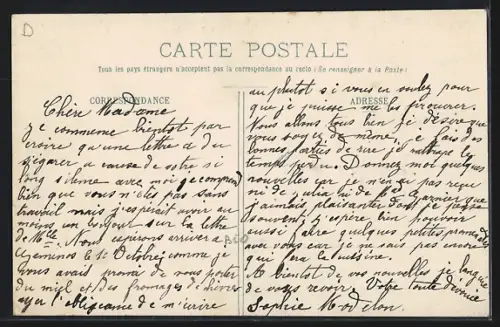 D
CARTE POSTALE
Tous les pays étrangers n'acceptent pas la correspondance au recto (Se renseigner à la Poste)
CORRESPONDANCE
ADRESSE
Chère Madame
je commence bientôt par
croire qu'une lettre a du
s'égarer a cause de votre si
long silence avec moi je comprend
bien que vous n'êtes pas sans
travail mais j'espérait avoir au
moins un sur la lettre
de Mlle Nous espérons arriver a
le 1er Octobre comme je
vous avait promis de vous porter
du miel et des fromages d'
ayez l'obligeance de m'écrire
BCO
au plutôt si vous en voulez pour
que je puisse me les procurer.
Nous allons tous bien je désire que
vous soyez de même, je fais des
bonnes parties de rire je rattrape le
temps perdu. Donnez moi quelques
nouvelles car je n'en ai pas reçu
ni de Julia ni de Md Garnier que
j'aimais plaisanter dont je pense
souvent, j'espère bien pouvoir
aussi faire quelques petites promenades
avec vous car je ne sais pas encore
qui fera la cuisine.
A bientôt de vos nouvelles je languie
de vous revoir. Votre toute dévouée
Sophie